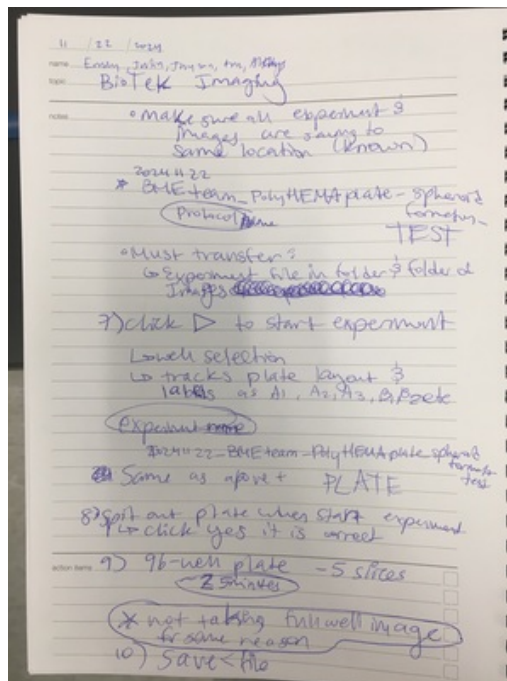 11 / 22 / 2024
name Emily, John, Jayna,
topic BioTek Imaging
notes • Make sure all experiment &
images are saving to
same location (known)
20241122
* BMEteam_PolyHEMAplate-spheroid
formation_
Protocol name
TEST
• Must transfer:
↳ Experiment file in folder & folder of
Images
7) click ▷ to start experiment
↳ well selection
↳ tracks plate layout &
labels as A1, A2, A3, B1, B2 etc
experiment name
20241122_BMEteam_PolyHEMAplate spheroid
formation
test
Same as above + PLATE
8) Spit out plate when start experiment
↳ click yes it is correct
action items 9) 96-well plate - 5 slices
25 minutes
* not taking full well image
for some reason
10) Save < file